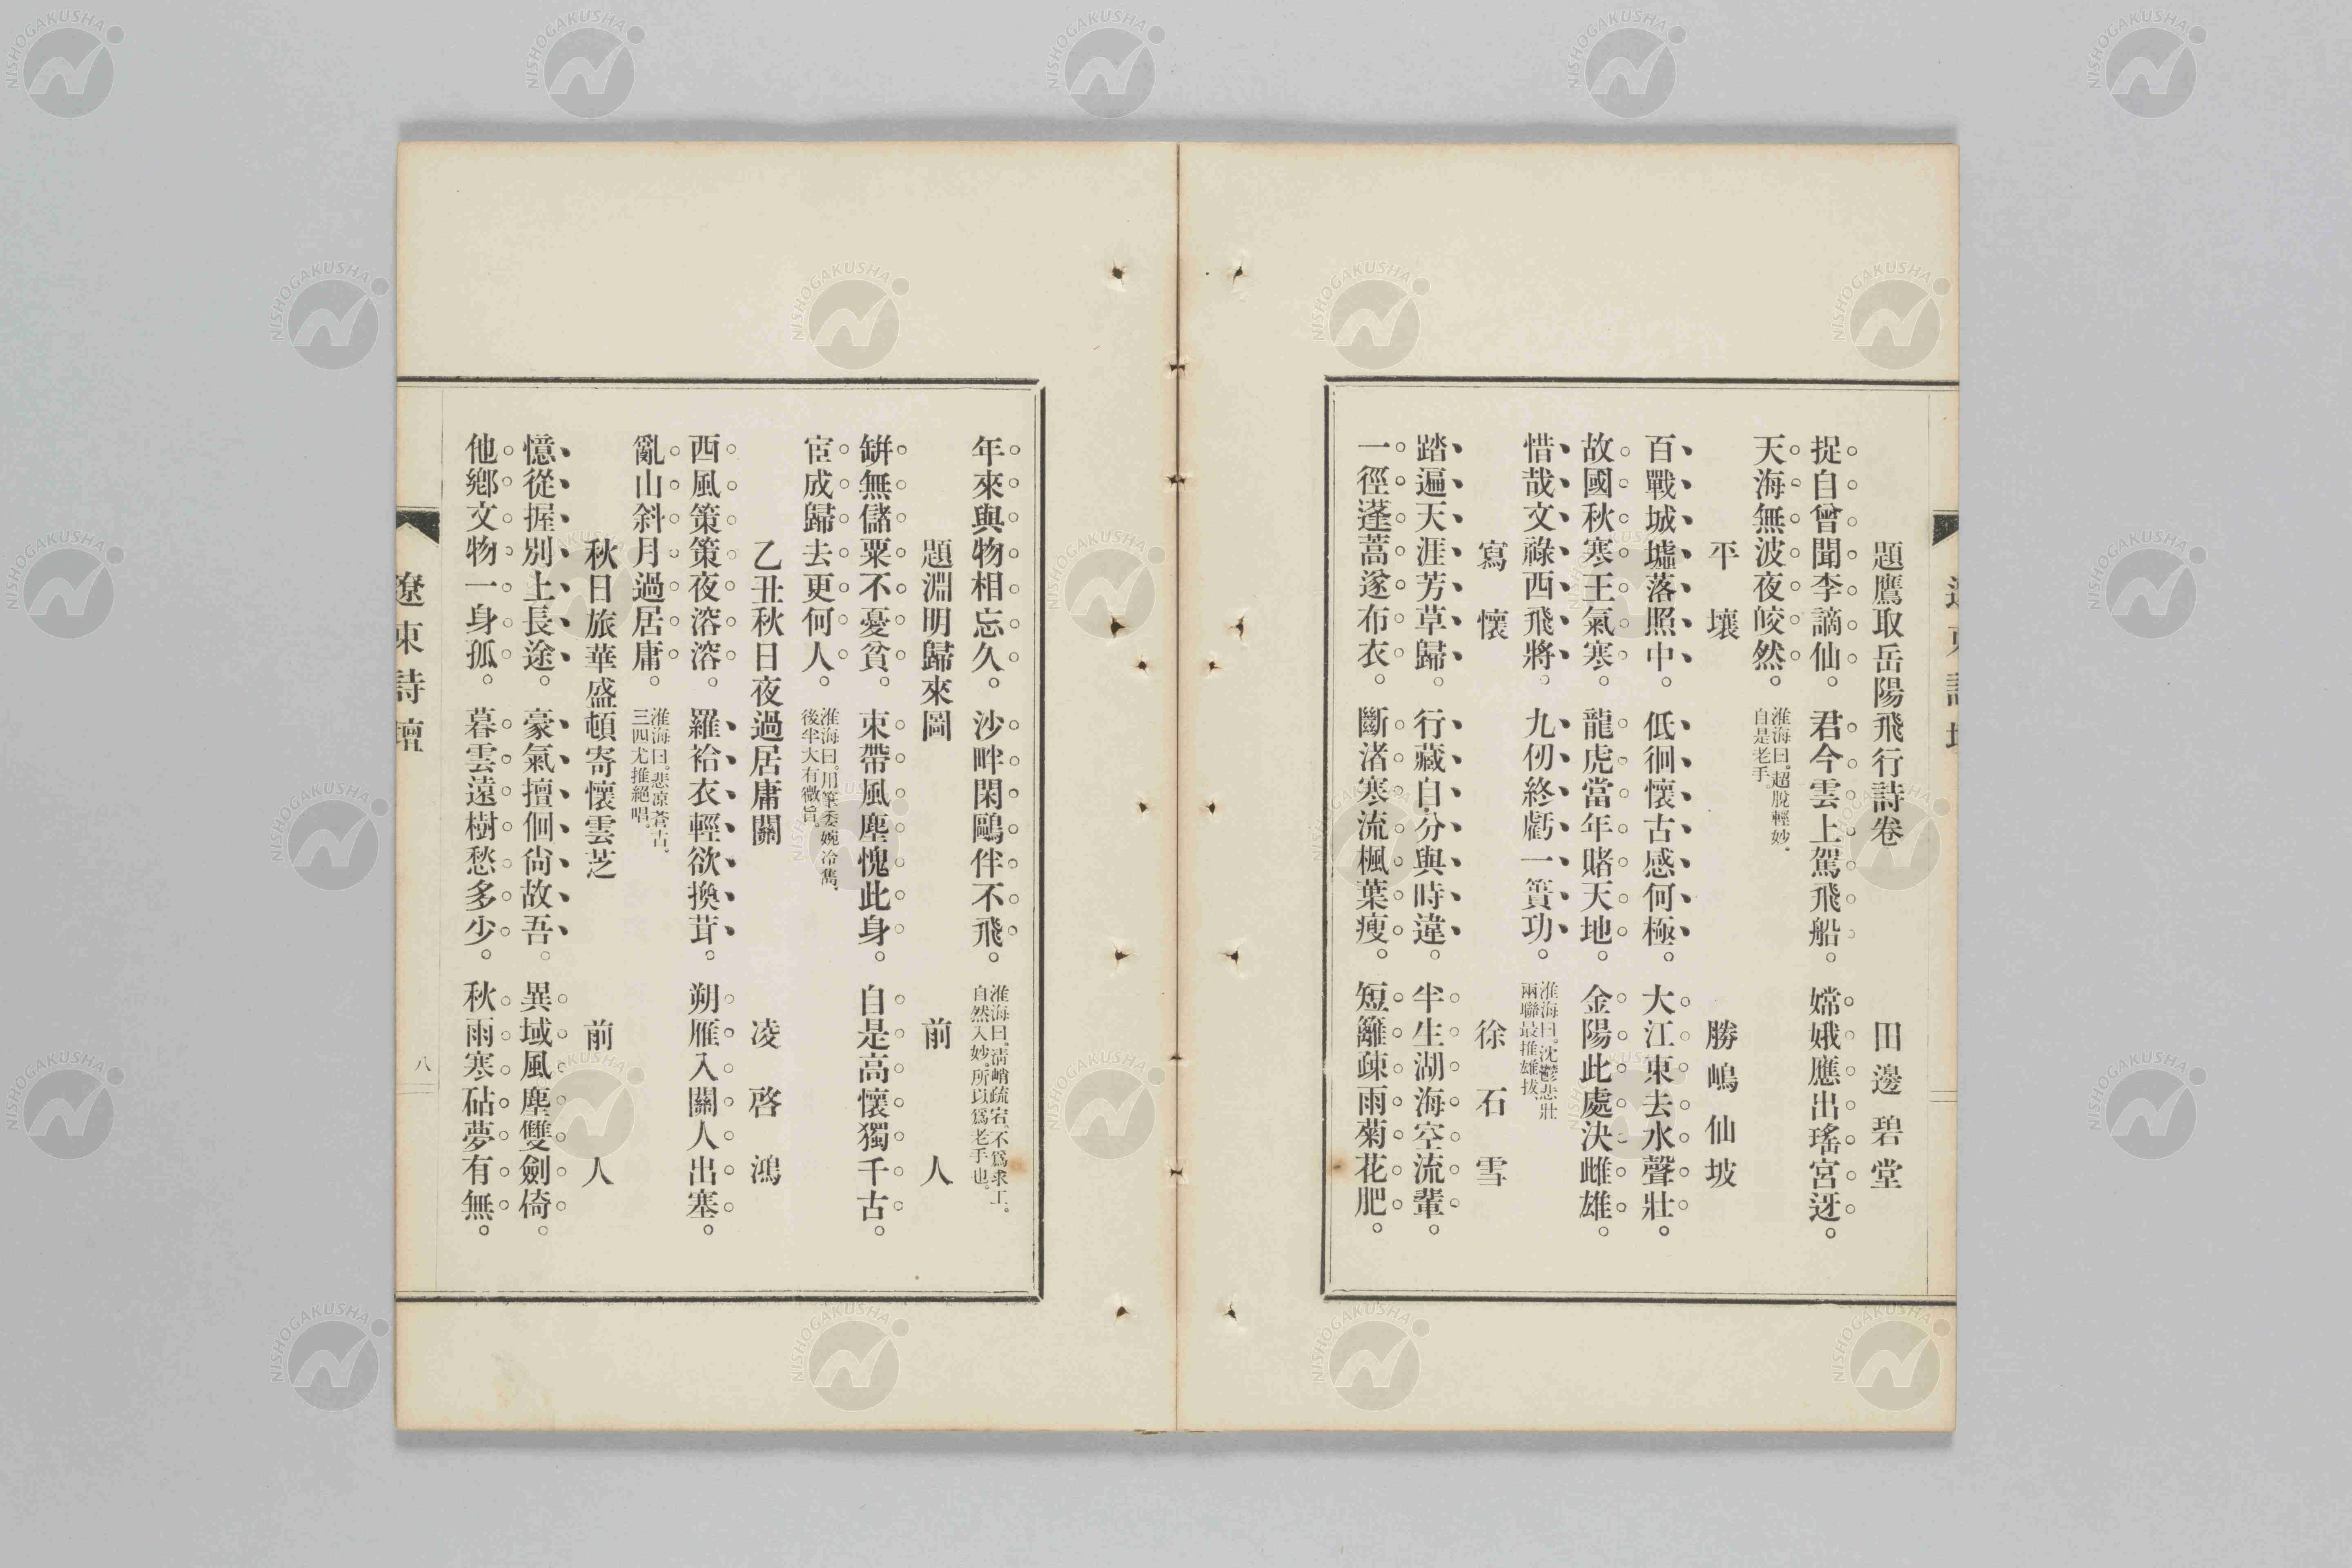 題鷹取岳陽飛行詩卷　田邊碧堂
捉自曾聞李謫仙。君今雲上駕飛船。嫦娥應出瑤宮迓。
天海無波夜皎然。淮海曰。超脫輕妙。自是老手。
平壤　勝嶋仙坡
百戰城墟落照中。低徊懷古感何極。大江東去水聲壯。
故國秋寒王氣寒。龍虎當年賭天地。金陽此處決雌雄。
惜哉文祿西飛將。九仞終虧一簣功。淮海曰。沈鬱悲壯 兩聯最推雄拔。
寫懷　徐石雪
踏遍天涯芳草歸。行藏自分與時違。半生湖海空流輩。
一徑蓬蒿遂布衣。斷渚寒流楓葉瘦。短籬疎雨菊花肥。
年來與物相忘久。沙畔閑鷗伴不飛。淮海曰。淸峭疏宕。不爲求工。自然入妙。所以爲老手也。
題淵明歸來圖　前人
缾無儲粟不憂貧。束帶風塵愧此身。自是高懷獨千古。
宦成歸去更何人。淮海曰。用筆委婉冷雋。後半大有微旨。
乙丑秋日夜過居庸關　凌啓鴻
西風策策夜溶溶。羅袷衣輕欲換茸。朔雁入關人出塞。
亂山斜月過居庸。淮海曰。悲凉蒼古。三四尤推絕唱。
秋日旅華盛頓寄懷雲芝　前人
憶從握別上長途。豪氣擅個尙故吾。異域風塵雙劍倚。
他鄕文物一身孤。暮雲遠樹愁多少。秋雨寒砧夢有無。
遼東詩壇
八
NISHOGAKUSHA